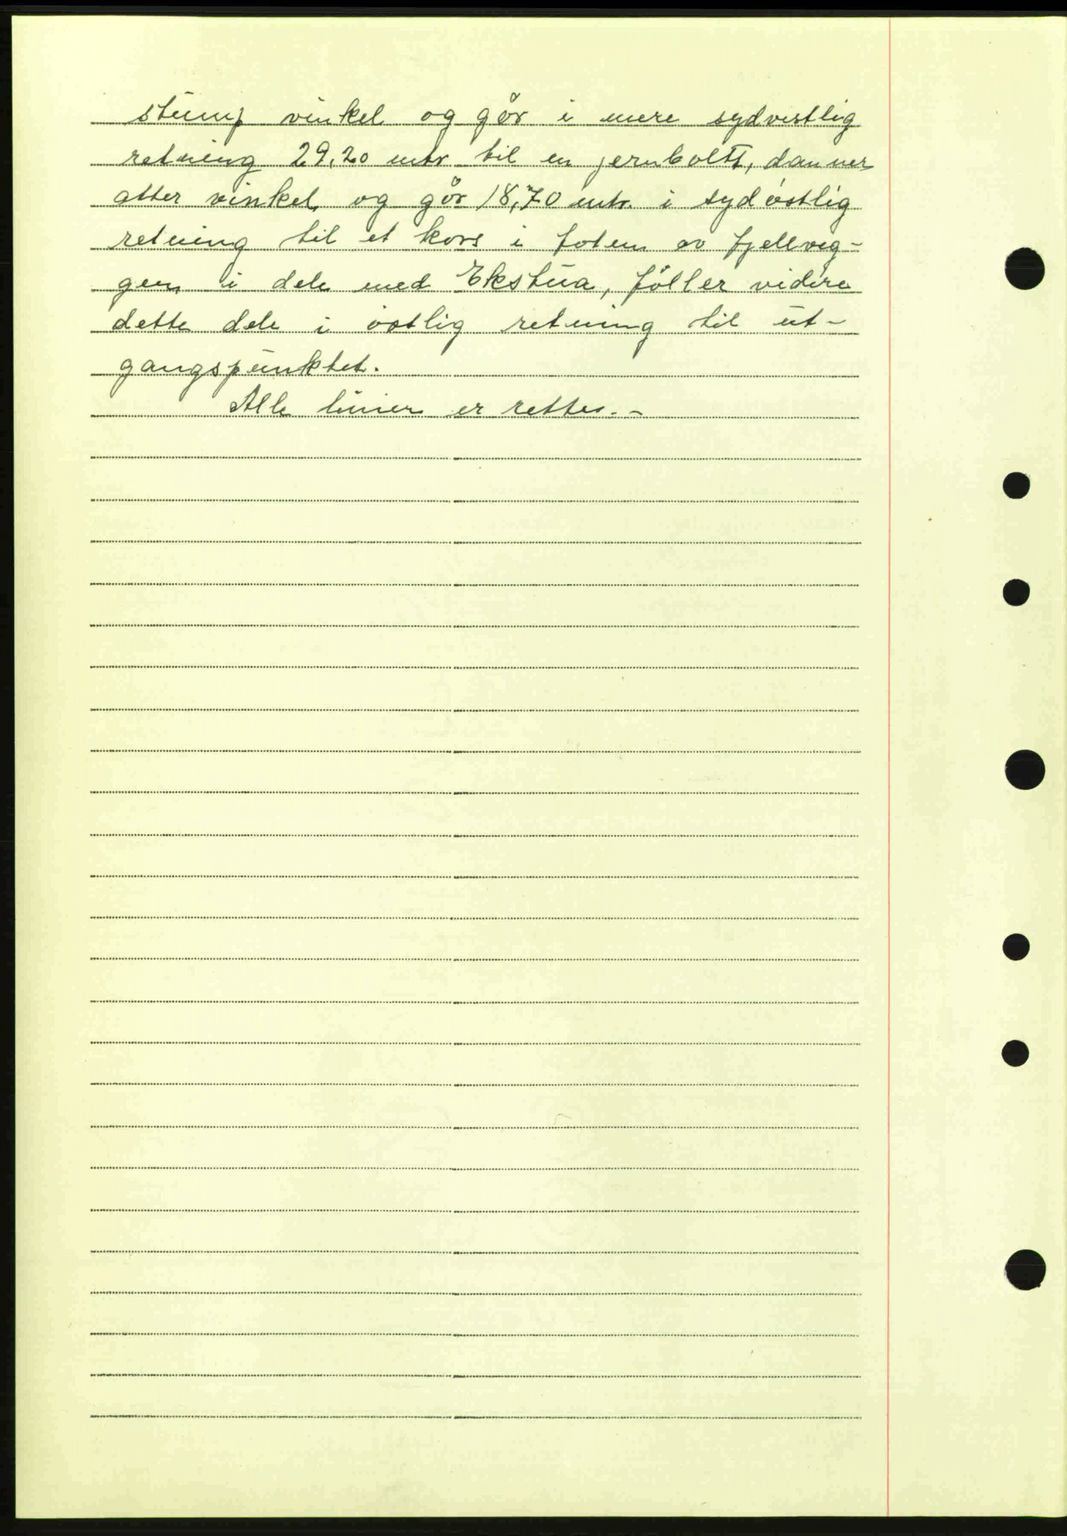 stump vinkel og går i mere sydvestlig
retning 29,20 mtr til en jernboltt, danner
atter vinkel og går 18,70 mtr. i sydøstlig
retning til et kors i foten av fjellveg-
gen i dele med Ekstua, føller videre
dette dele i østlig retning til ut-
gangspunktet.
Alle linier er rettes. -